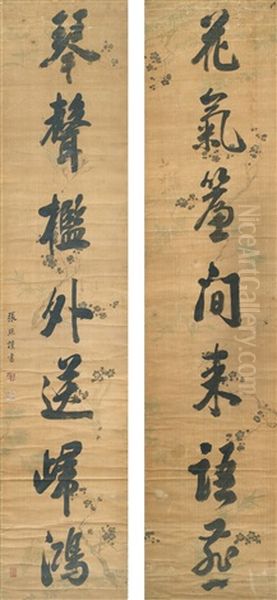 花氣簾間來語燕
琴聲檻外送歸鴻
張 書
NiceArtGallery.com